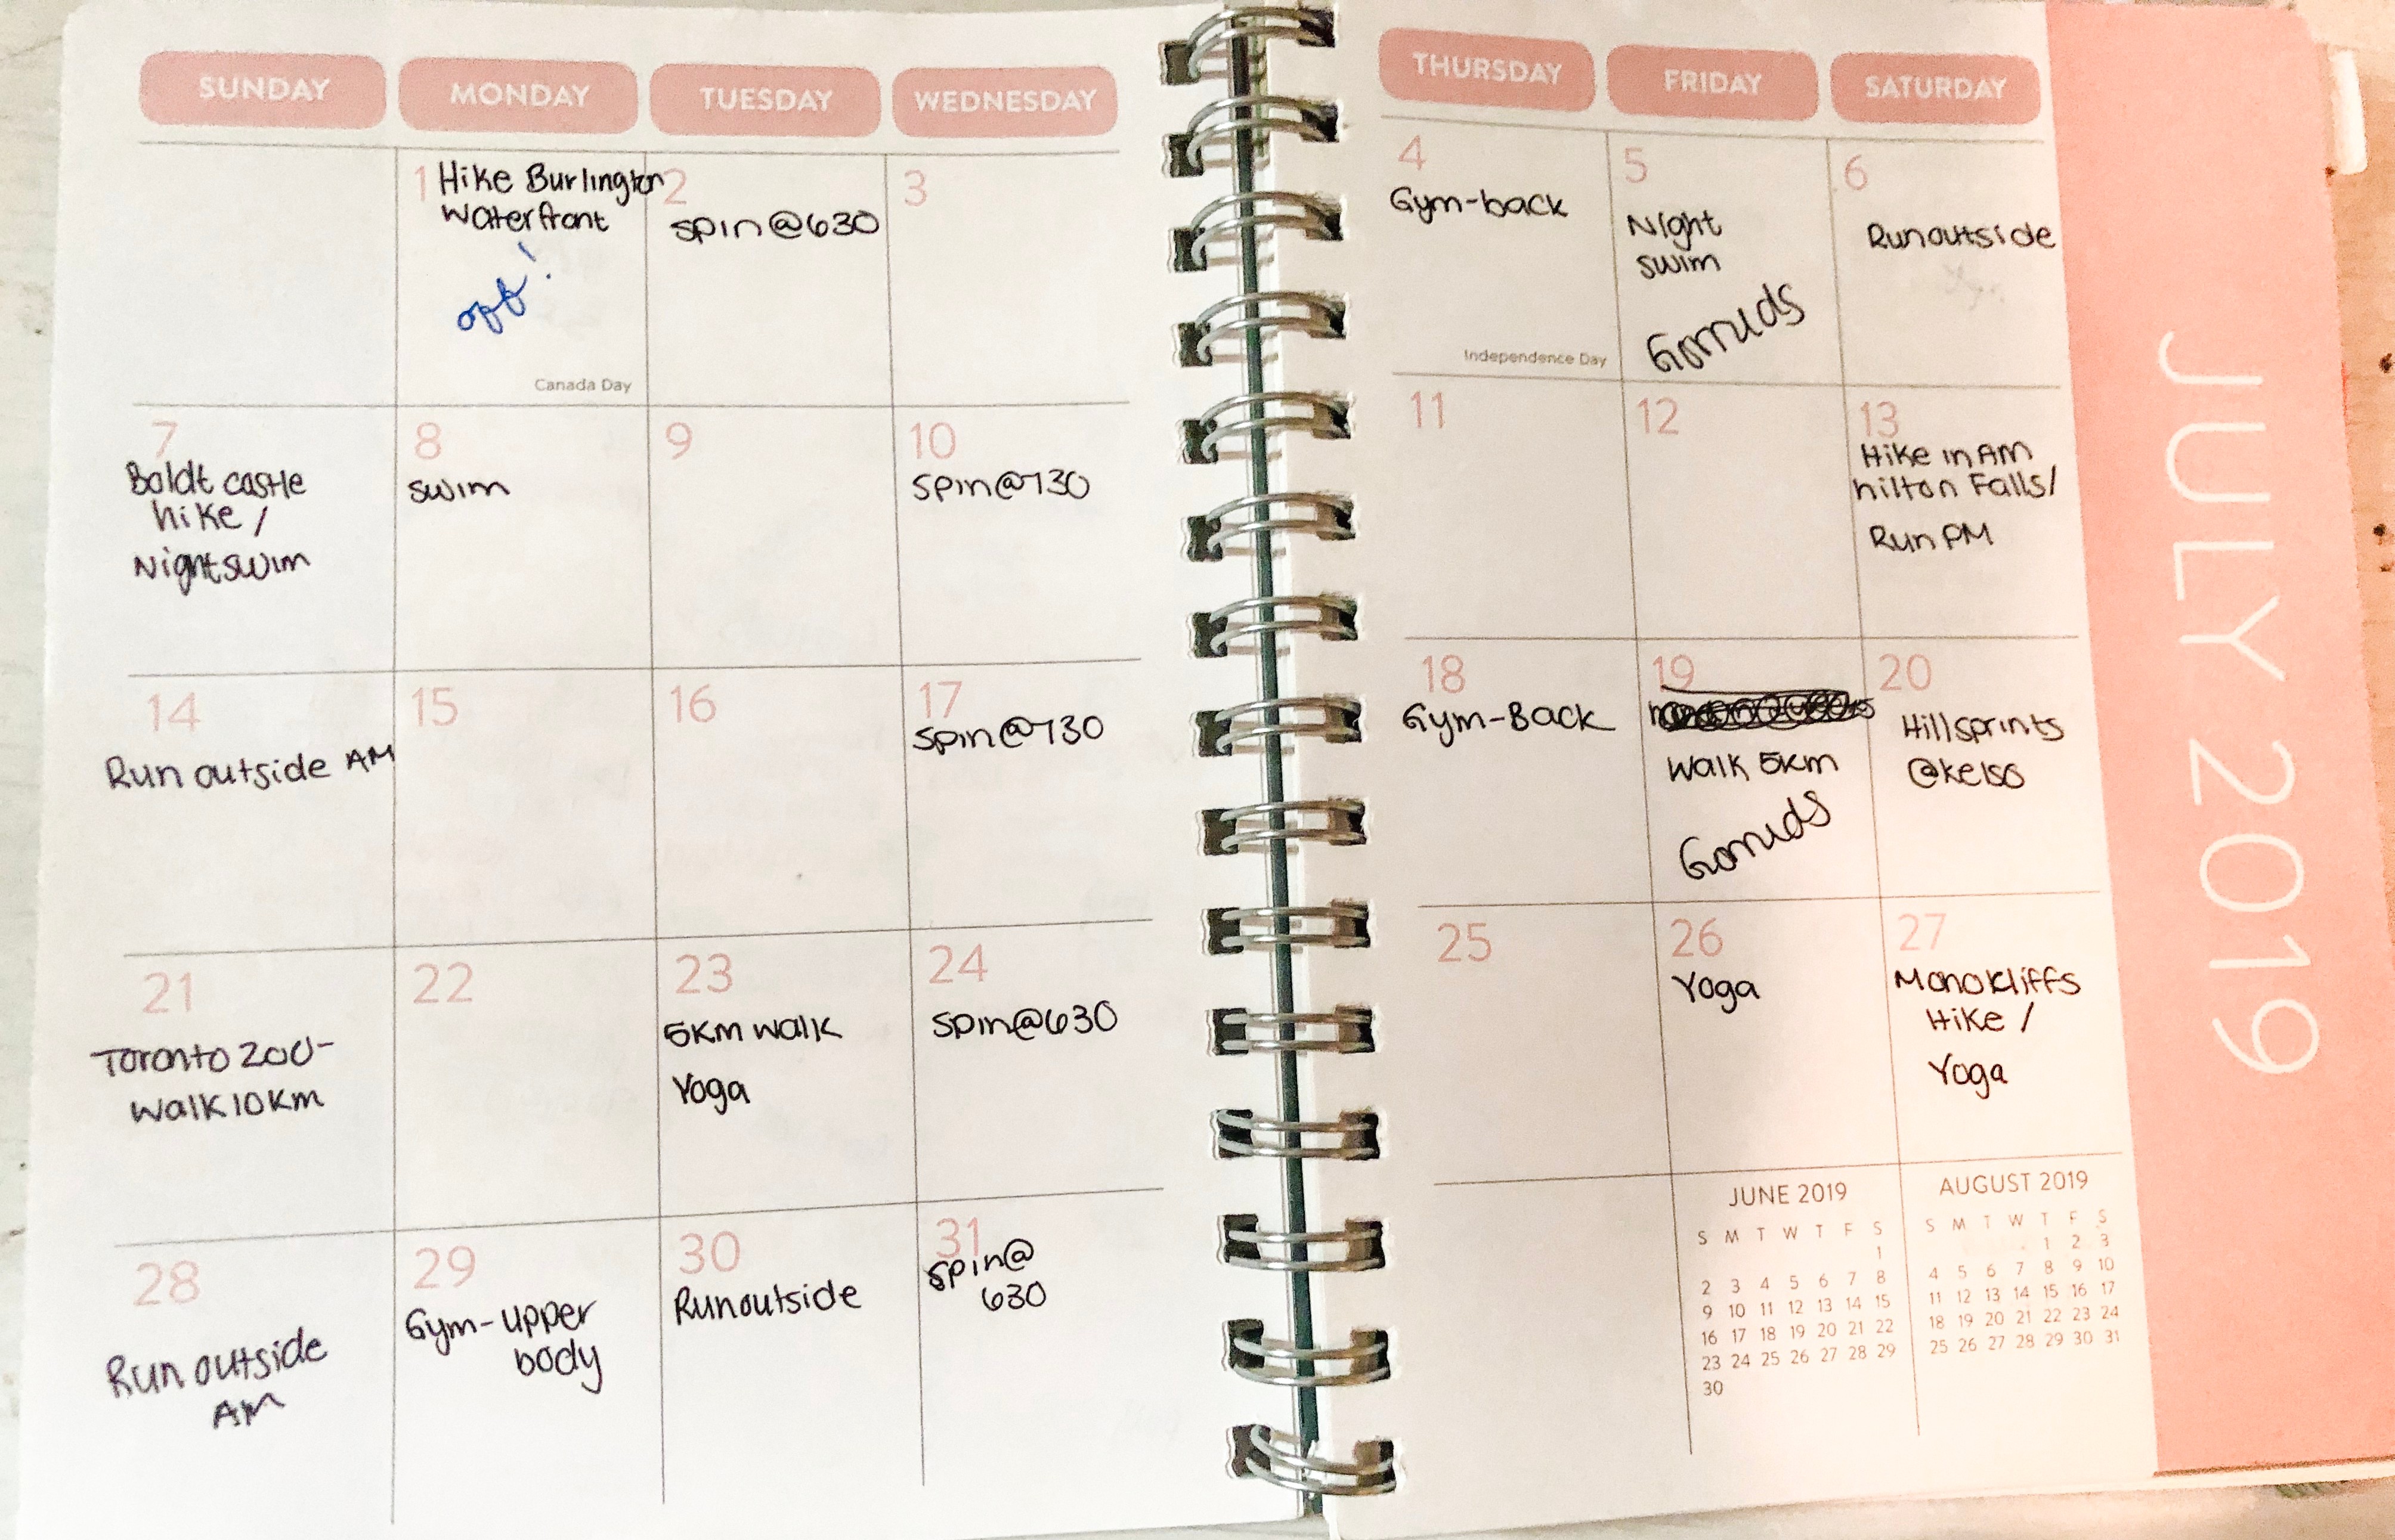 SUNDAY MONDAY TUESDAY WEDNESDAY THURSDAY FRIDAY SATURDAY
1 Hike Burlington
Waterfront
off!
Canada Day
2
spin@630
3
4
Gym-back
Independence Day
5
Night
swim
6
Run outside
7
Boldt castle
hike /
Night swim
8
swim
9
10
spin@730
11
12
13
Hike in AM
hilton Falls/
Run PM
14
Run outside AM
15
16
17
spin@730
18
Gym-Back
19
Walk 5km
20
Hill sprints
@kelso
21
Toronto zoo-
walk 10km
22
23
5km walk
Yoga
24
spin@630
25
26
Yoga
27
Mono Cliffs
Hike /
Yoga
28
Run outside
AM
29
Gym-upper
body
30
Run outside
31
spin@
630
JUNE 2019
S M T W T F S
1
2 3 4 5 6 7 8
9 10 11 12 13 14 15
16 17 18 19 20 21 22
23 24 25 26 27 28 29
30
AUGUST 2019
S M T W T F S
1 2 3
4 5 6 7 8 9 10
11 12 13 14 15 16 17
18 19 20 21 22 23 24
25 26 27 28 29 30 31
JULY 2019